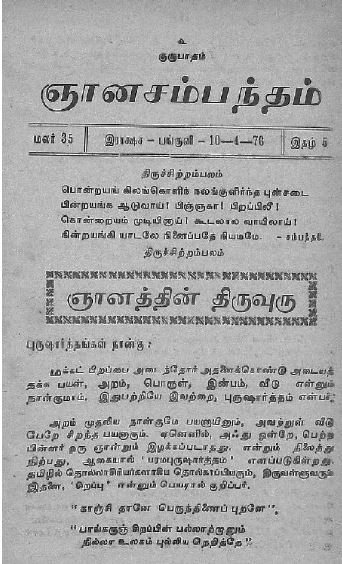 உ
குருபாதம்
ஞானசம்பந்தம்
மலர் 35 இராக்ஷச - பங்குனி - 10-4-76 இதழ் 5
திருச்சிற்றம்பலம்
பொன்றயங் கிலங்கொளிந் நலங்குளிர்ந்த புன்சடை
பின்றயங்க ஆடுவாய்! பிஞ்ஞகா! பிறப்பிலீ!
கொன்றையம் முடியினாய்! கூடலால வாயிலாய்!
கின்றயங்கி யாடலே நினைப்பதே நியமமே. - சம்பந்தர்.
திருச்சிற்றம்பலம்
ஞானத்தின் திருவுரு
புருஷார்த்தங்கள் நான்கு :
மக்கட் பிறப்பை அடைந்தோர் அதனைக்கொண்டு அடையத்
தக்க பயன், அறம், பொருள், இன்பம், வீடு என்னும்
நான்குமாம். இதுபற்றியே இவற்றை, புருஷார்த்தம் என்பர்.
அறம் முதலிய நான்குமே பயனாயினும், அவற்றுள் வீடு
பேறே சிறந்த பயனாகும். ஏனெனில், அஃது ஒன்றே, பெற்ற
பின்னர் ஒரு ஞான்றும் இழக்கப்படாதது. என்றும் நிலைத்து
நிற்பது, ஆகையால் 'பரமபுருஷார்த்தம்' எனப்படுகின்றது.
தமிழில் தொல்லாசிரியர்களாகிய தொல்காப்பியரும், திருவள்ளுவரும்
இதனை, 'சிறப்பு' என்னும் பெயரால் குறிப்பர்.
"காஞ்சி தானே பெருந்திணைப் புறனே".
"பாங்கருஞ் சிறப்பின் பல்லாற்றானும்
நில்லா உலகம் புல்லிய நெறித்தே".